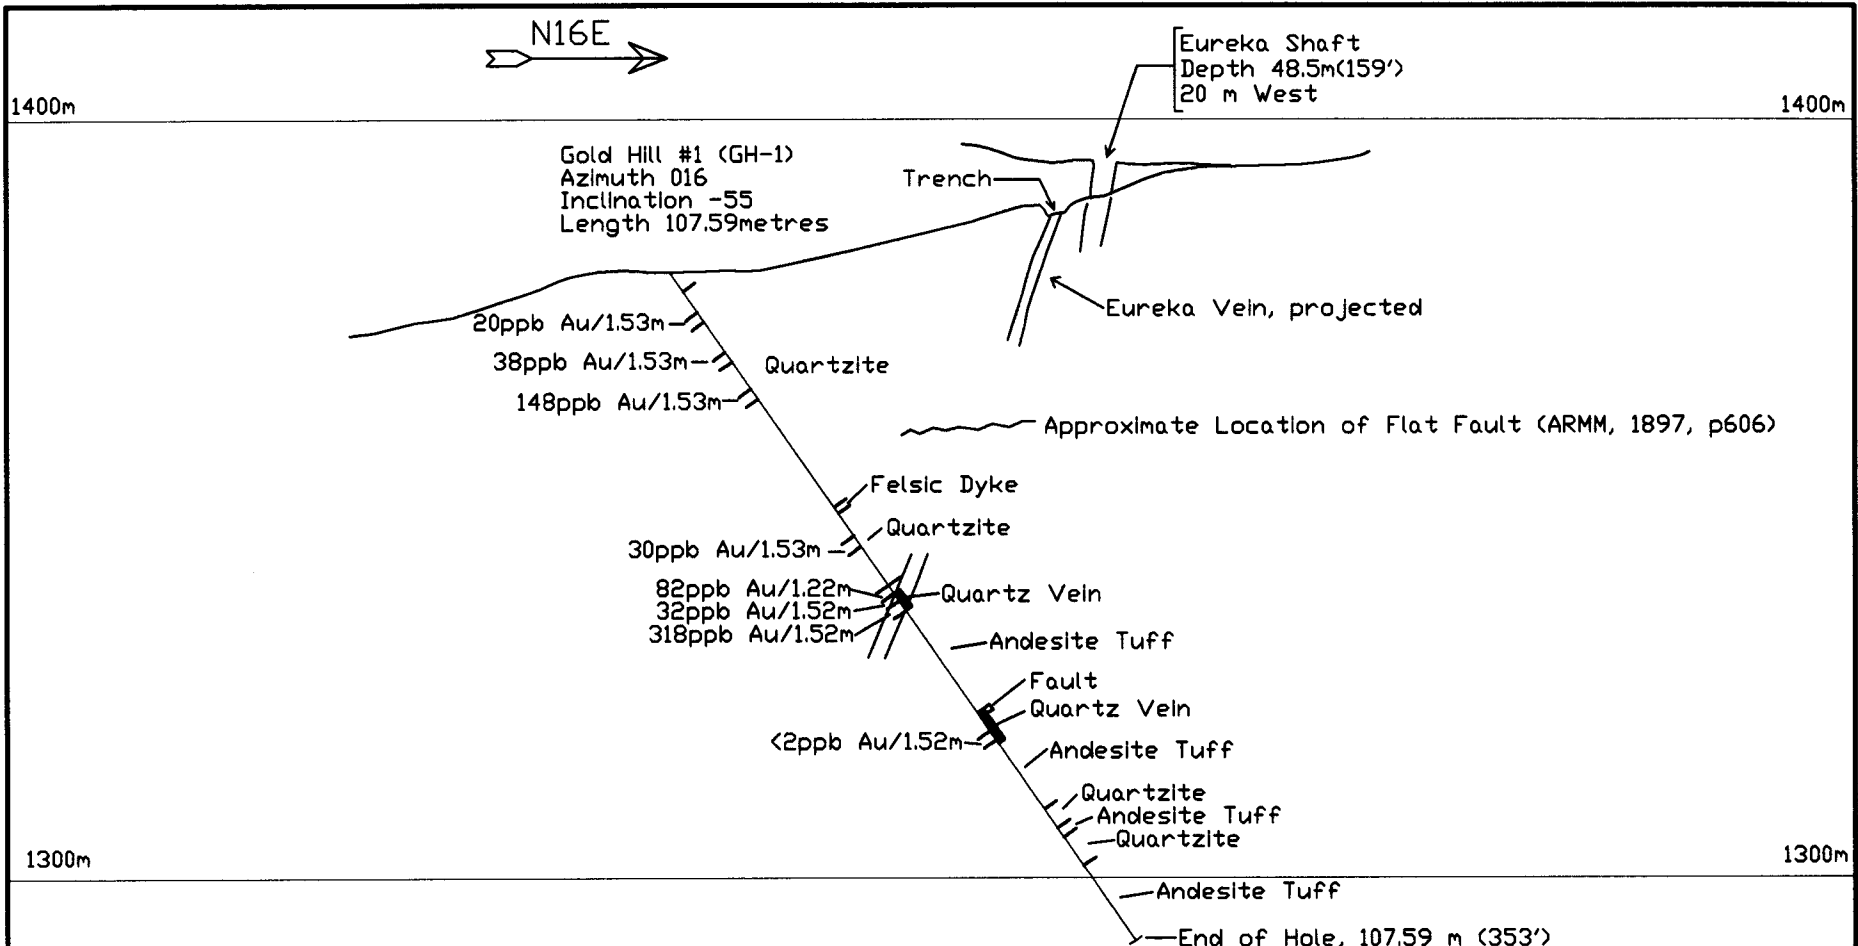 N16E
Eureka Shaft
Depth 48.5m(159')
20 m West
1400m
1400m
Gold Hill #1 (GH-1)
Azimuth 016
Inclination -55
Length 107.59metres
Trench
Eureka Vein, projected
20ppb Au/1.53m
38ppb Au/1.53m
Quartzite
148ppb Au/1.53m
Approximate Location of Flat Fault (ARMM, 1897, p606)
Felsic Dyke
Quartzite
30ppb Au/1.53m
82ppb Au/1.22m
Quartz Vein
32ppb Au/1.52m
318ppb Au/1.52m
Andesite Tuff
Fault
Quartz Vein
<2ppb Au/1.52m
Andesite Tuff
Quartzite
Andesite Tuff
Quartzite
1300m
1300m
Andesite Tuff
End of Hole, 107.59 m (353')